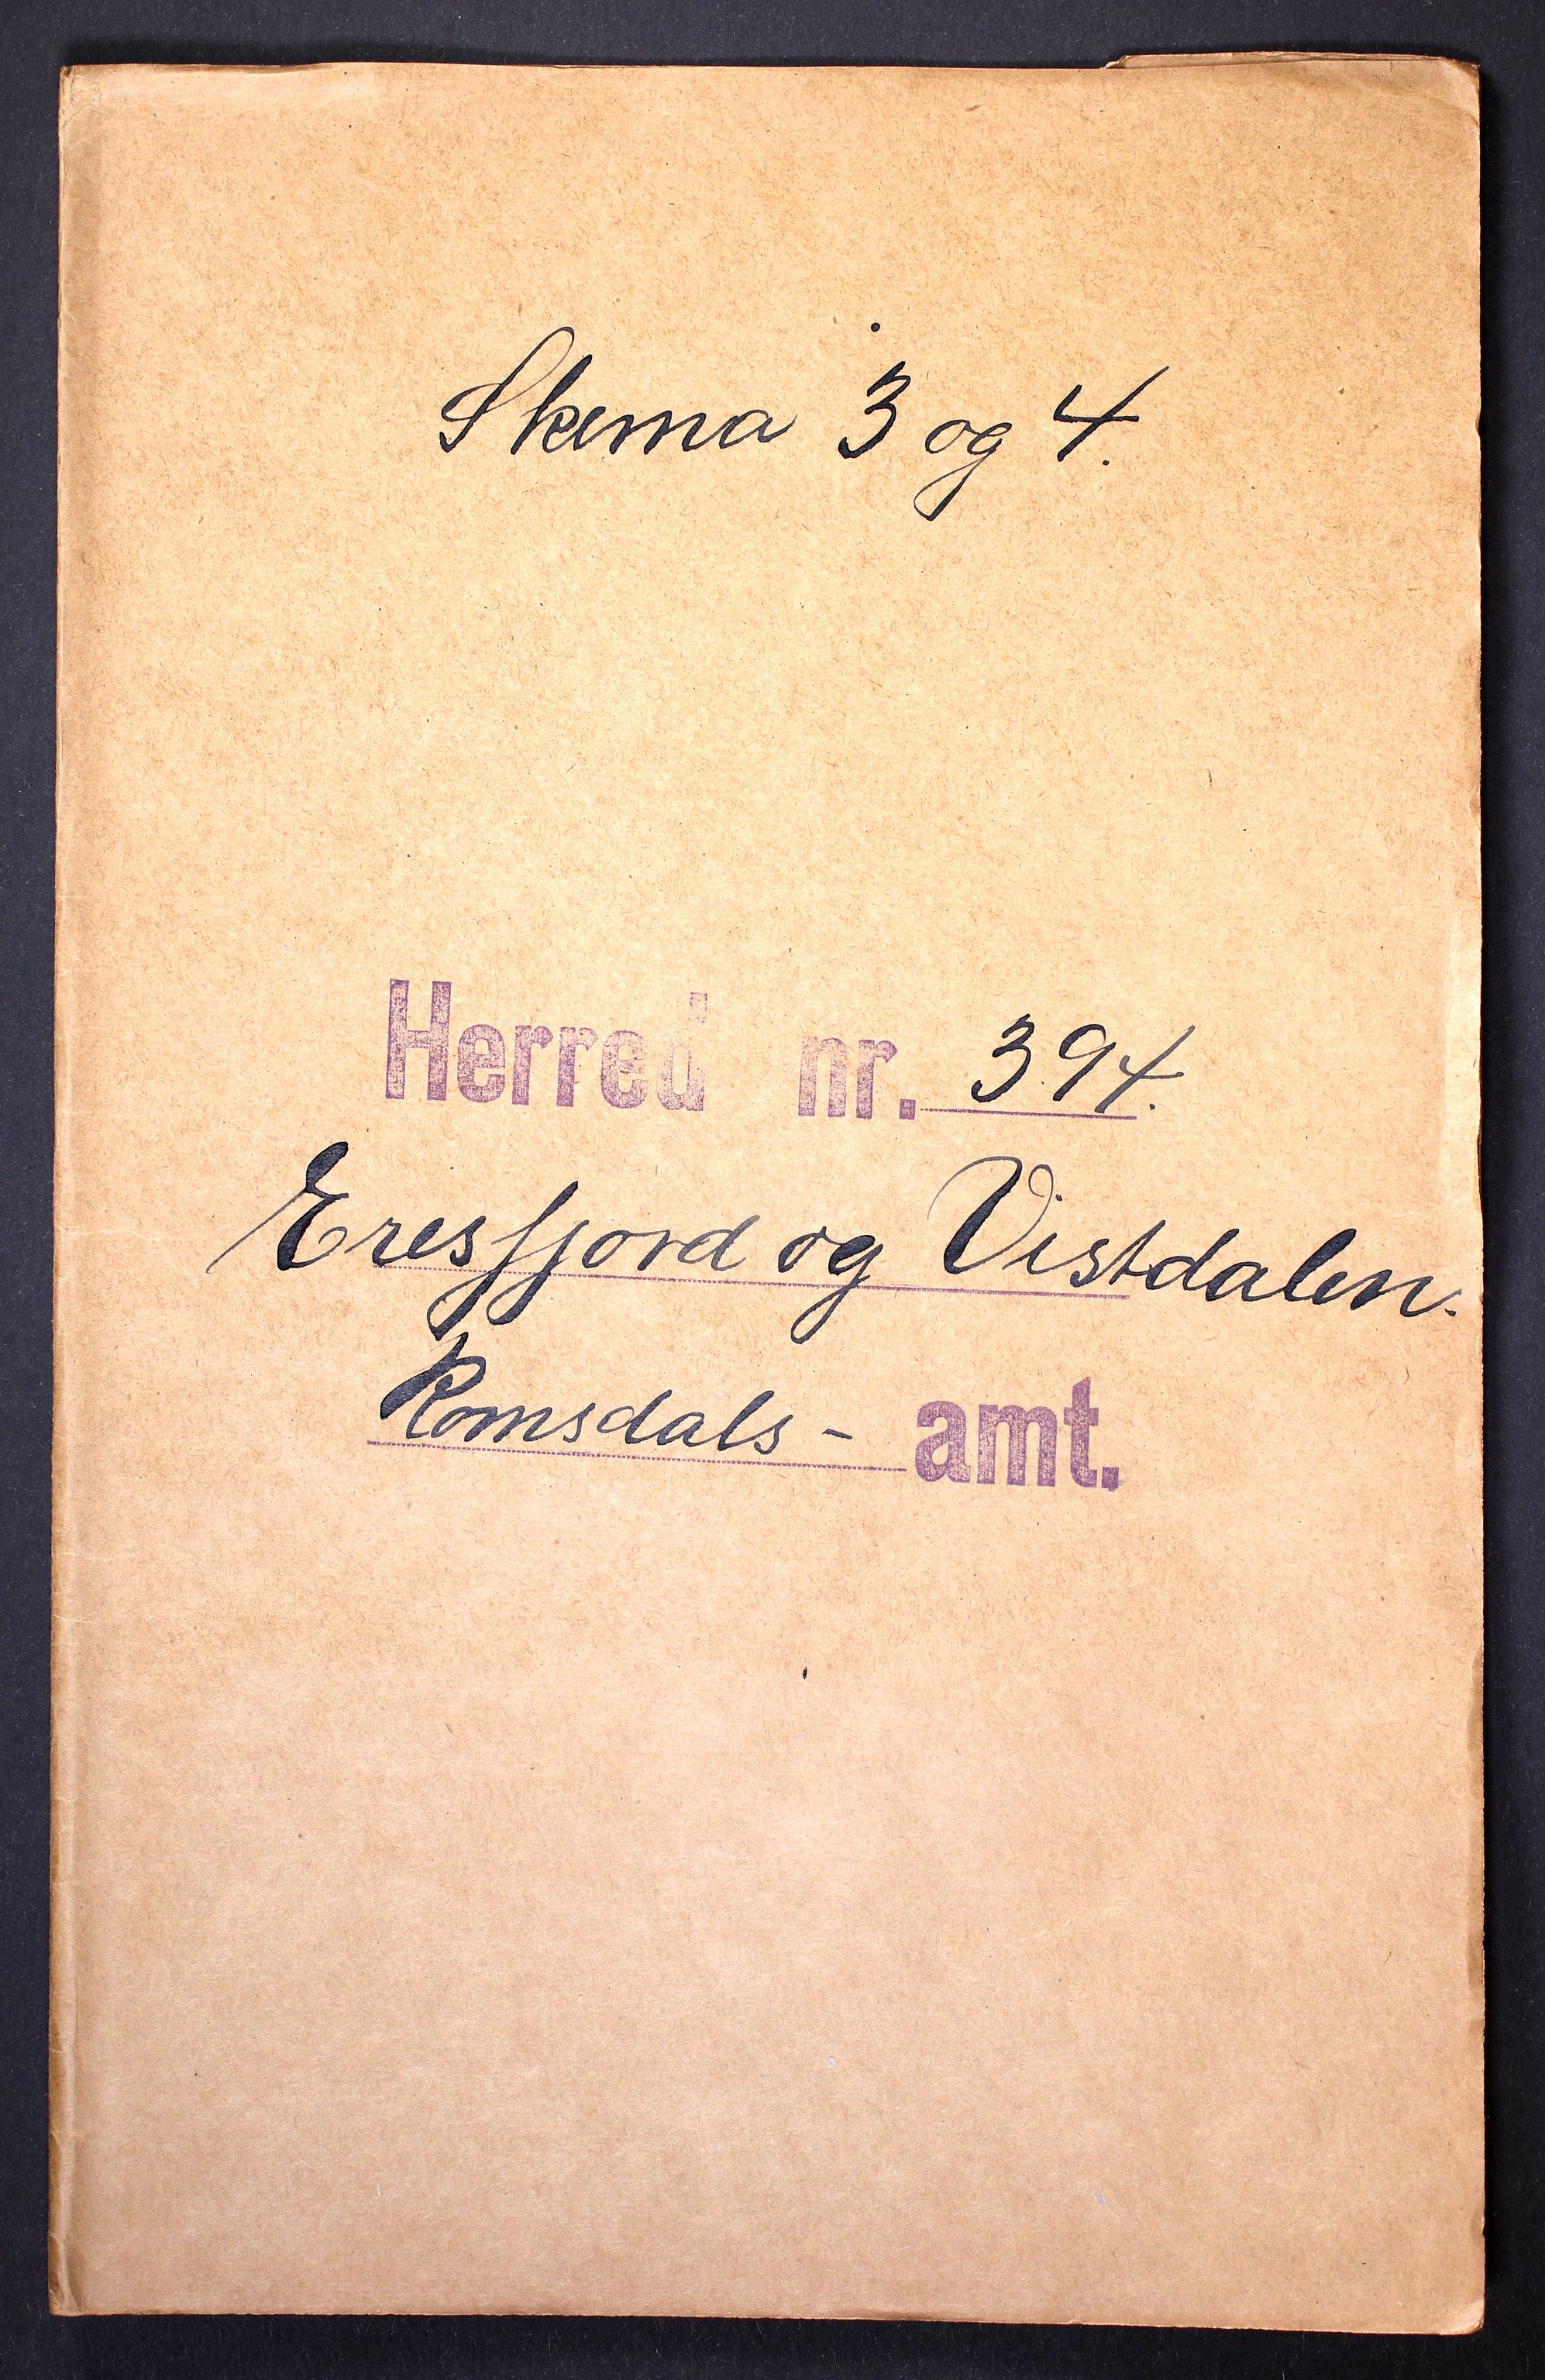 Skema 3 og 4.
Herred nr. 394.
Eresfjord og Vistdalen.
Romsdals - amt.